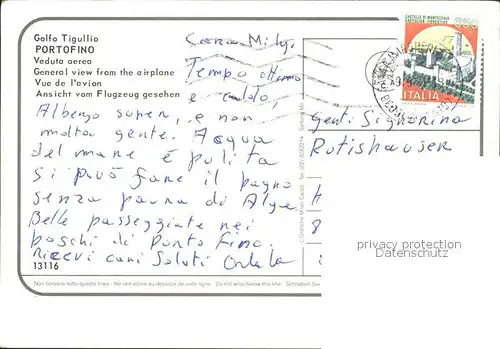 Golfo Tigullio
PORTOFINO
Veduta aerea
General view from the airplane
Vue de l'avion
Ansicht vom Flugzeug gesehen
Cara Milly.
Tempo ottimo
e caldo,
Albergo super, e non
molta gente. Acqua
del mare é pulita
si può fare il bagno
senza paura di Alge
Belle passeggiate nei
boschi di Porto Fino.
Ricevi cari Saluti
13116
CASTELLO DI MONTECCHIO
CASTIGLION FIORENTINO
350
ITALIA
Gent. Signorina
Rutishauser
privacy protection
Datenschutz
Non scrivere sotto questa linea - Ne rien écrire au dessous de cette ligne - Do not write below this line - Schreiben Sie